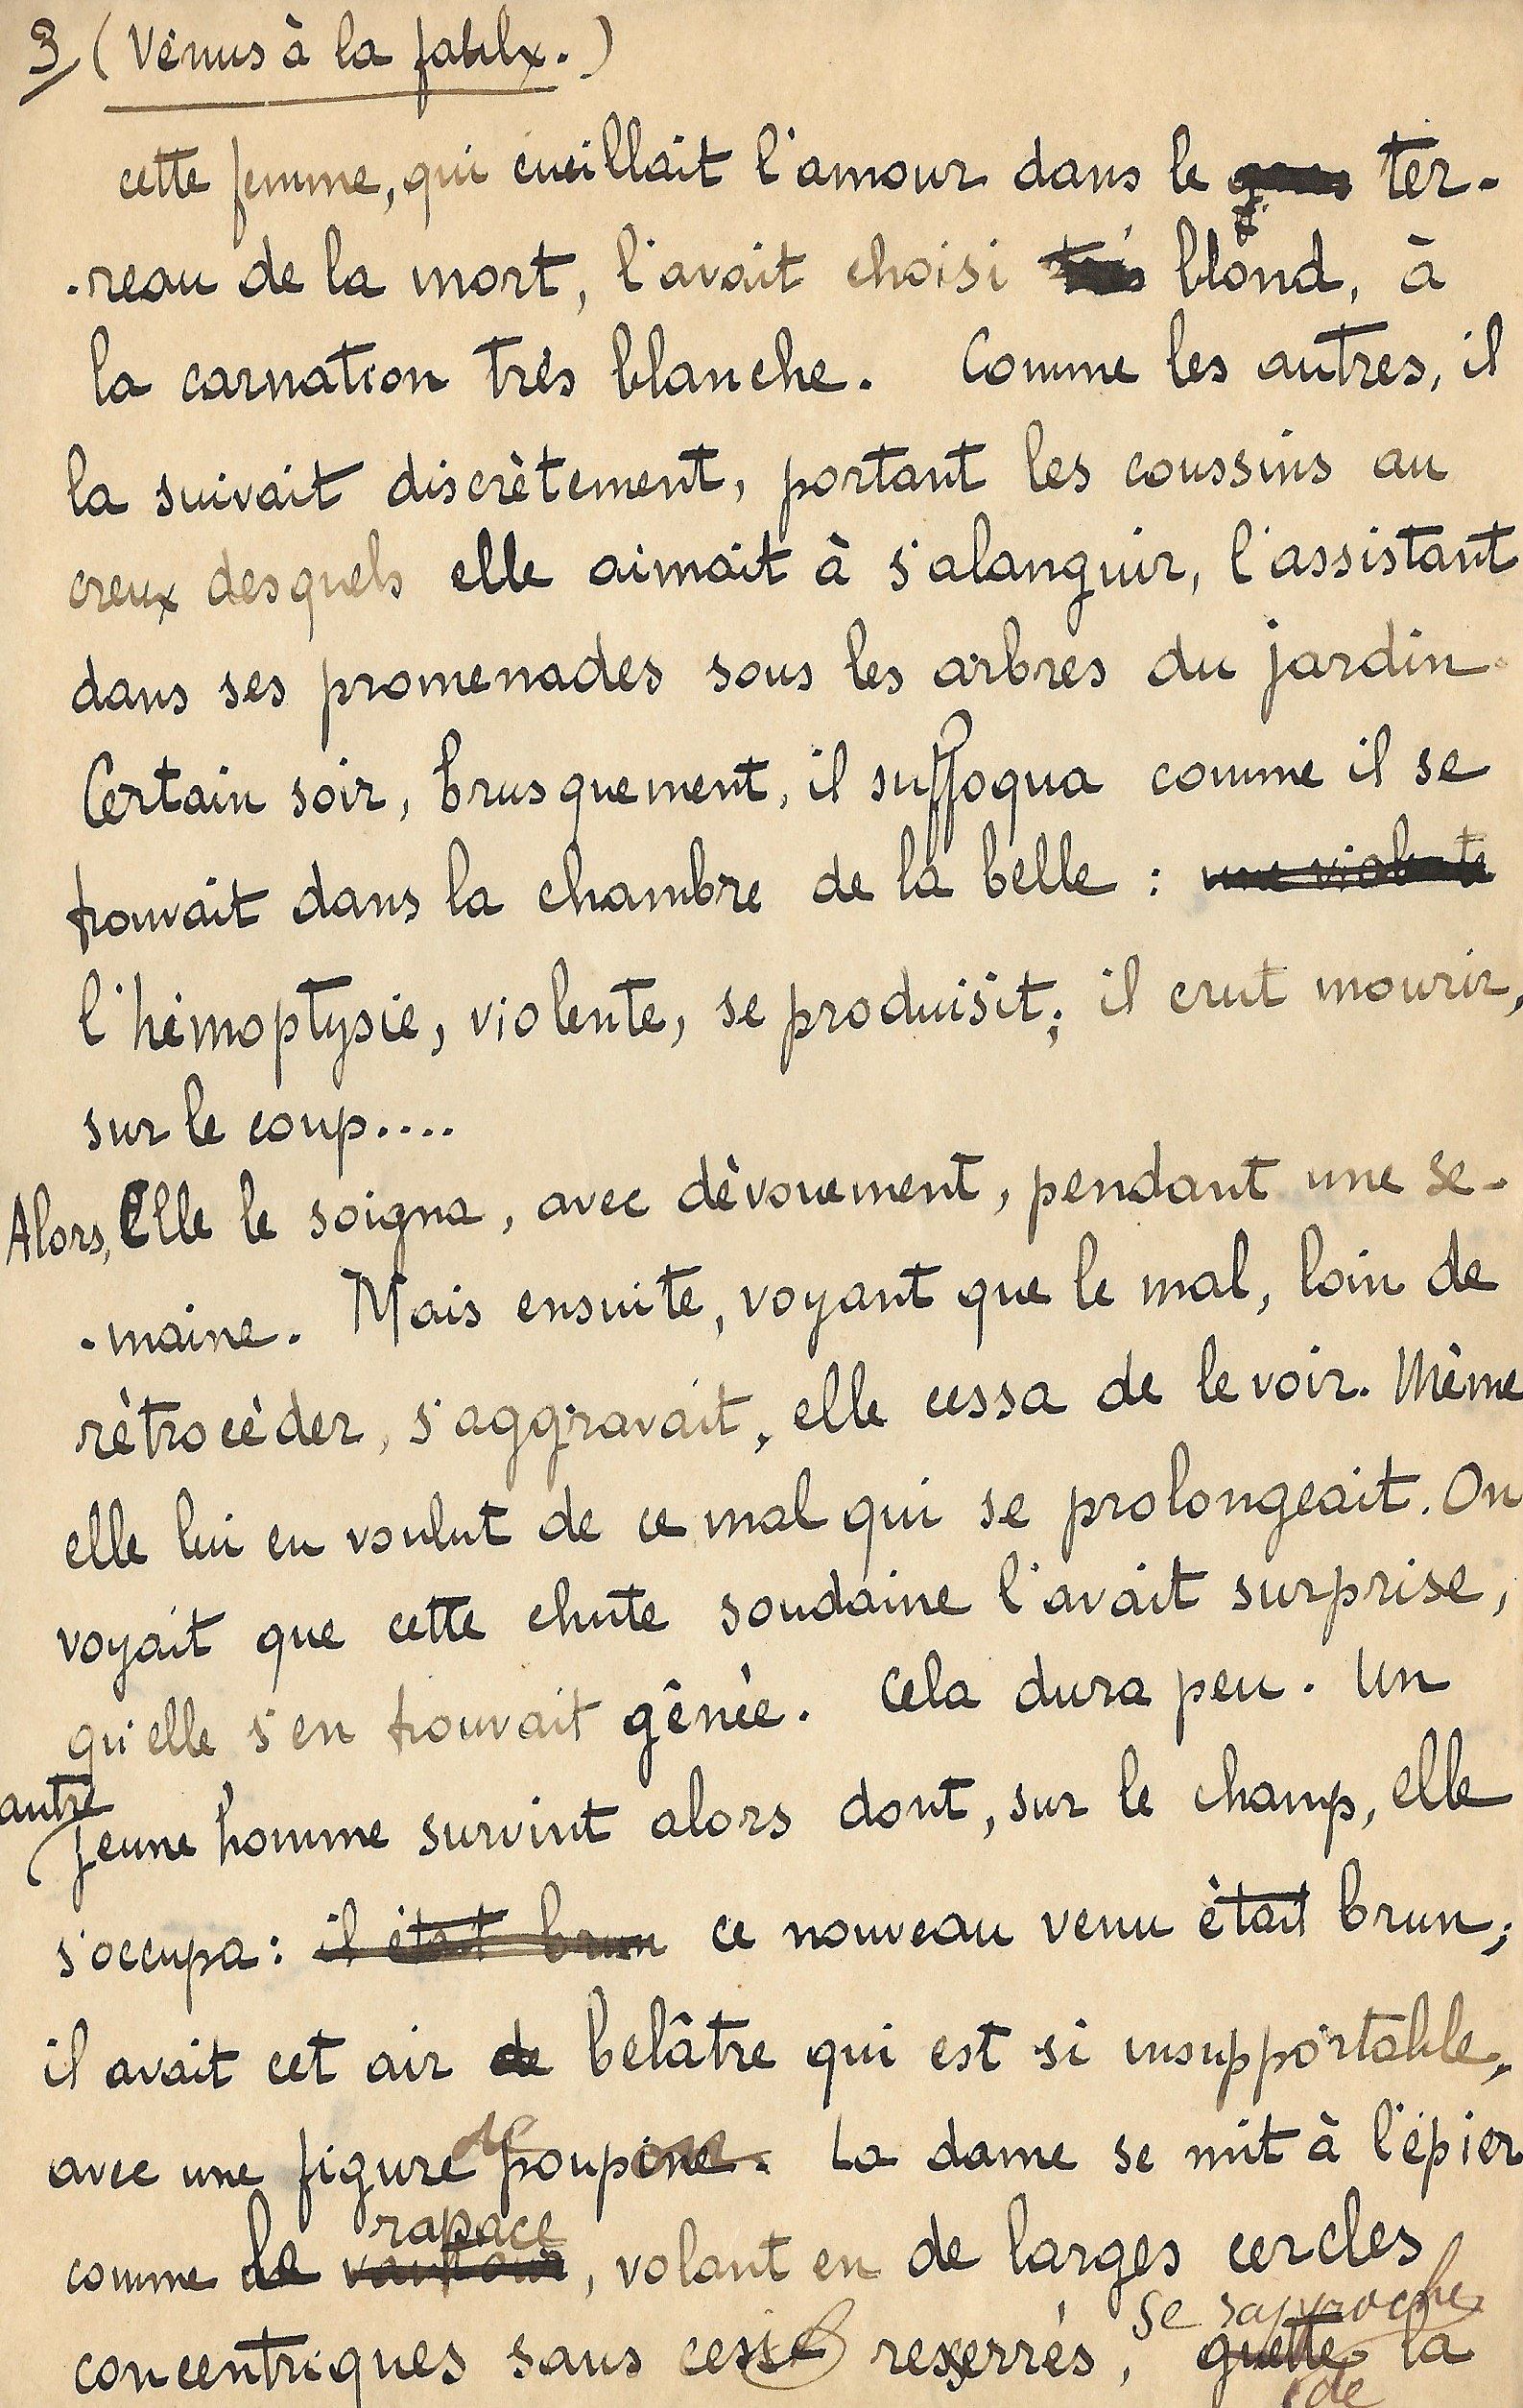 3/ (Vénus à la fablx.)
cette femme, qui cueillait l'amour dans le ter-
-reau de la mort, l'avait choisi blond, à
la carnation très blanche. Comme les autres, il
la suivait discrètement, portant les coussins au
creux desquels elle aimait à s'alanguir, l'assistant
dans ses promenades sous les arbres du jardin.
Certain soir, brusquement, il suffoqua comme il se
trouvait dans la chambre de la belle : une violente
l'hémoptysie, violente, se produisit; il crut mourir,
sur le coup....
Alors, Elle le soigna, avec dévouement, pendant une se-
-maine. Mais ensuite, voyant que le mal, loin de
rétrocéder, s'aggravait, elle cessa de le voir. Même
elle lui en voulut de ce mal qui se prolongeait. On
voyait que cette chute soudaine l'avait surprise,
qu'elle s'en trouvait gênée. Cela dura peu. Un
autre
jeune homme survint alors dont, sur le champ, elle
s'occupa: il était brun ce nouveau venu était brun;
il avait cet air de belâtre qui est si insupportable,
avec une figure de poupine. La dame se mit à l'épier
rapace
comme le vautour, volant en de larges cercles
se rapproche
concentriques sans cesse resserrés, guette la
de